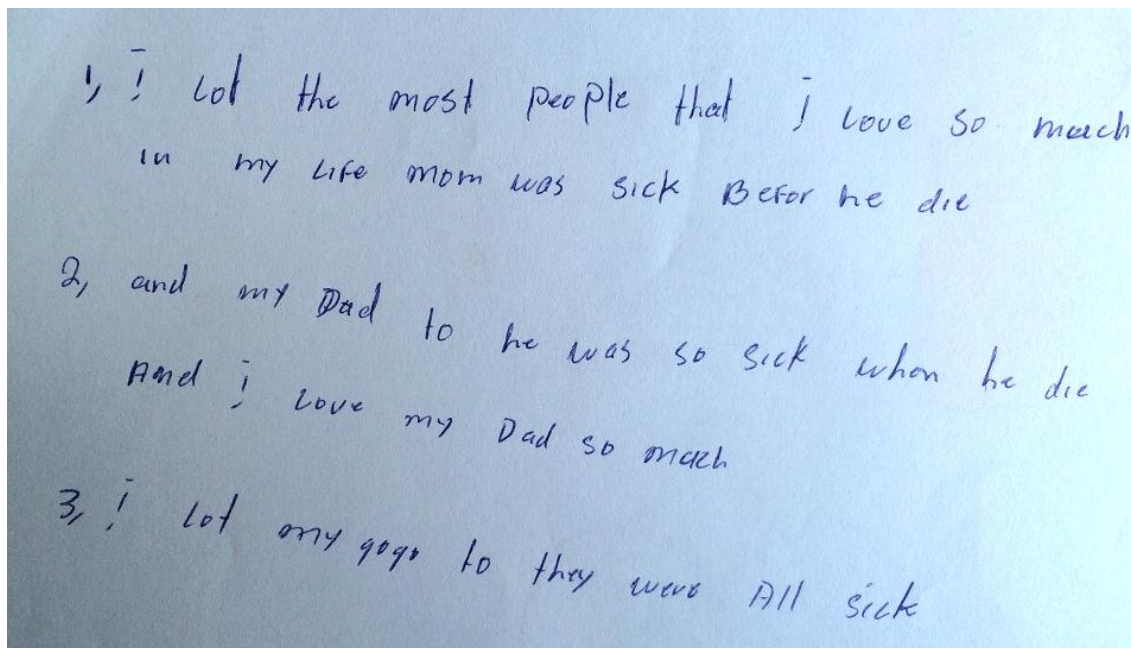 1, i lot the most people that i love so mach
in my Life mom was sick Befor he die
2, and my Dad to he was so sick when he die
And i love my Dad so mach
3, i lot my gogo to they were All sick